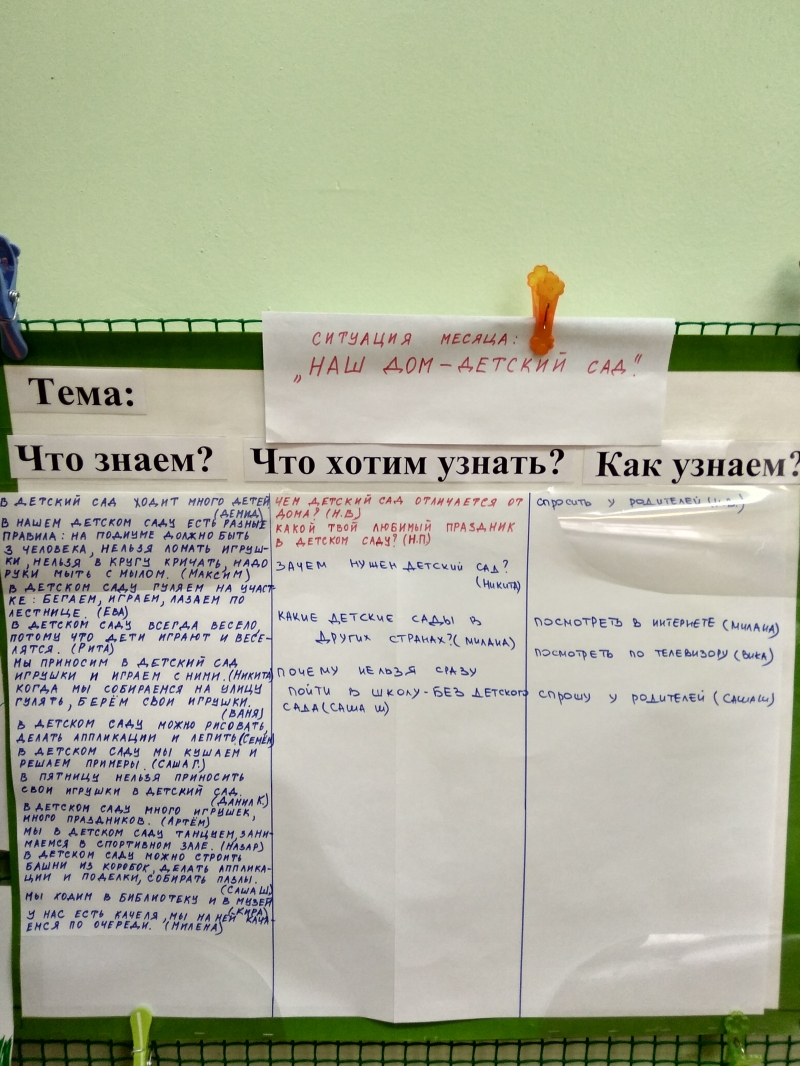 СИТУАЦИЯ МЕСЯЦА:
„НАШ ДОМ – ДЕТСКИЙ САД."
Тема:
Что знаем?
Что хотим узнать?
Как узнаем?
В ДЕТСКИЙ САД ХОДИТ МНОГО ДЕТЕЙ
(ДЕМИД)
В НАШЕМ ДЕТСКОМ САДУ ЕСТЬ РАЗНЫЕ
ПРАВИЛА: НА ПОДИУМЕ ДОЛЖНО БЫТЬ
3 ЧЕЛОВЕКА, НЕЛЬЗЯ ЛОМАТЬ ИГРУШ-
КИ, НЕЛЬЗЯ В КРУГУ КРИЧАТЬ, НАДО
РУКИ МЫТЬ С МЫЛОМ. (МАКСИМ)
В ДЕТСКОМ САДУ ГУЛЯЕМ НА УЧАСТ-
КЕ: БЕГАЕМ, ИГРАЕМ, ЛАЗАЕМ ПО
ЛЕСТНИЦЕ. (ЕВА)
В ДЕТСКОМ САДУ ВСЕГДА ВЕСЕЛО,
ПОТОМУ ЧТО ДЕТИ ИГРАЮТ И ВЕСЕ-
ЛЯТСЯ. (РИТА)
МЫ ПРИНОСИМ В ДЕТСКИЙ САД
ИГРУШКИ И ИГРАЕМ С НИМИ. (НИКИТА)
КОГДА МЫ СОБИРАЕМСЯ НА УЛИЦУ
ГУЛЯТЬ, БЕРЁМ СВОИ ИГРУШКИ.
(ВАНЯ)
В ДЕТСКОМ САДУ МОЖНО РИСОВАТЬ,
ДЕЛАТЬ АППЛИКАЦИИ И ЛЕПИТЬ. (СЕМЁН)
В ДЕТСКОМ САДУ МЫ КУШАЕМ И
РЕШАЕМ ПРИМЕРЫ. (САША Г.)
В ПЯТНИЦУ НЕЛЬЗЯ ПРИНОСИТЬ
СВОИ ИГРУШКИ В ДЕТСКИЙ САД.
(ДАНИЛ К.)
В ДЕТСКОМ САДУ МНОГО ИГРУШЕК,
МНОГО ПРАЗДНИКОВ. (АРТЁМ)
МЫ В ДЕТСКОМ САДУ ТАНЦУЕМ, ЗАНИ-
МАЕМСЯ В СПОРТИВНОМ ЗАЛЕ. (НАЗАР)
В ДЕТСКОМ САДУ МОЖНО СТРОИТЬ
БАШНИ ИЗ КОРОБОК, ДЕЛАТЬ АППЛИКА-
ЦИИ И ПОДЕЛКИ, СОБИРАТЬ ПАЗЛЫ.
(САША Ш)
МЫ ХОДИМ В БИБЛИОТЕКУ И В МУЗЕЙ
(КИРА)
У НАС ЕСТЬ КАЧЕЛЯ, МЫ НА НЕЙ КАЧА-
ЕМСЯ ПО ОЧЕРЕДИ. (МИЛЕНА)
ЧЕМ ДЕТСКИЙ САД ОТЛИЧАЕТСЯ ОТ
ДОМА? (Н.В.)
КАКОЙ ТВОЙ ЛЮБИМЫЙ ПРАЗДНИК
В ДЕТСКОМ САДУ? (Н.П)
ЗАЧЕМ НУЖЕН ДЕТСКИЙ САД?
(НИКИТА)
КАКИЕ ДЕТСКИЕ САДЫ В
ДРУГИХ СТРАНАХ? (МИЛАНА)
ПОЧЕМУ НЕЛЬЗЯ СРАЗУ
ПОЙТИ В ШКОЛУ - БЕЗ ДЕТСКОГО
САДА (САША Ш)
СПРОСИТЬ У РОДИТЕЛЕЙ
ПОСМОТРЕТЬ В ИНТЕРНЕТЕ (МИЛАНА)
ПОСМОТРЕТЬ ПО ТЕЛЕВИЗОРУ (ВИКА)
СПРОШУ У РОДИТЕЛЕЙ (САША Ш)